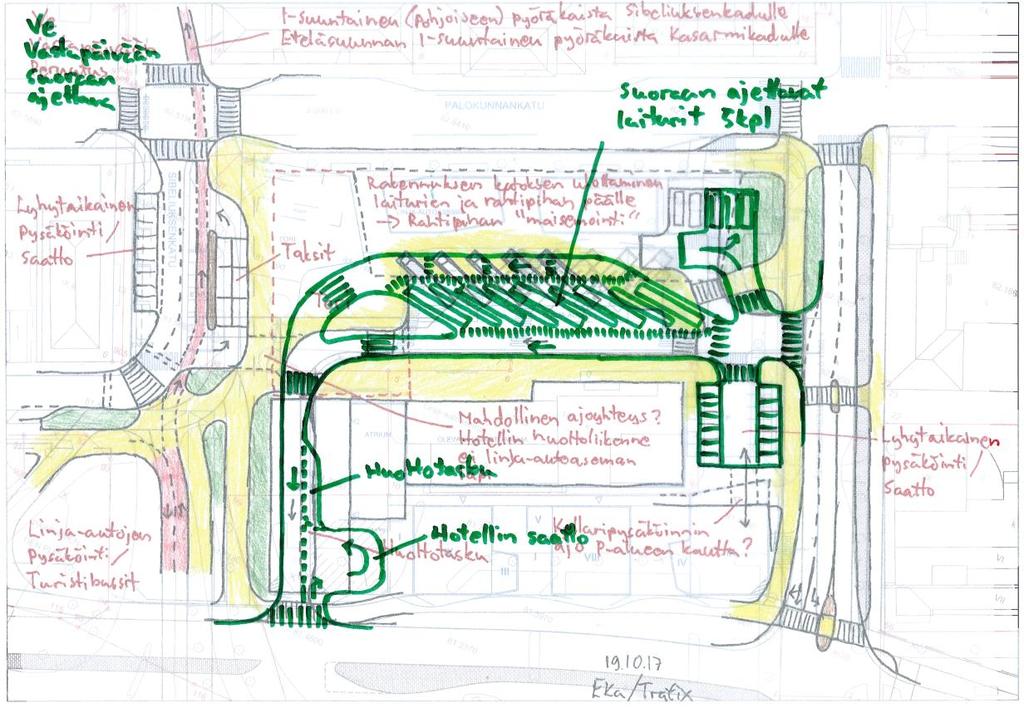 1-suuntainen (pohjoiseen) pyöräkaista Sibeliuksenkadulle
Eteläsuunnan 1-suuntainen pyöräkaista Kasarmikadulle
Ve
Vastapäivään
suoraan
ajettava
PALOKUNNANKATU
suoraan ajettavat
laiturit 5kpl
Rakennuksen katoksen ulottaminen
laiturien ja rahtipihan päälle
-> Rahtipihan "maisemointi"
Lyhytaikainen
pysäköinti/
saatto
SIBELIUKSENKATU
Taksit
Mahdollinen ajoyhteys?
Hotellin huoltoliikenne
ei linja-autoaseman
ATRIUM
Huoltotasku
Lyhytaikainen
pysäköinti/
saatto
Linja-autojen
pysäköinti/
Turistibussit
Hotellin saatto
Huoltotasku
Kellaripysäköinnin
ajo p-alueen kautta?
V
III
VIII
IV
19.10.17
EKa/Trafix